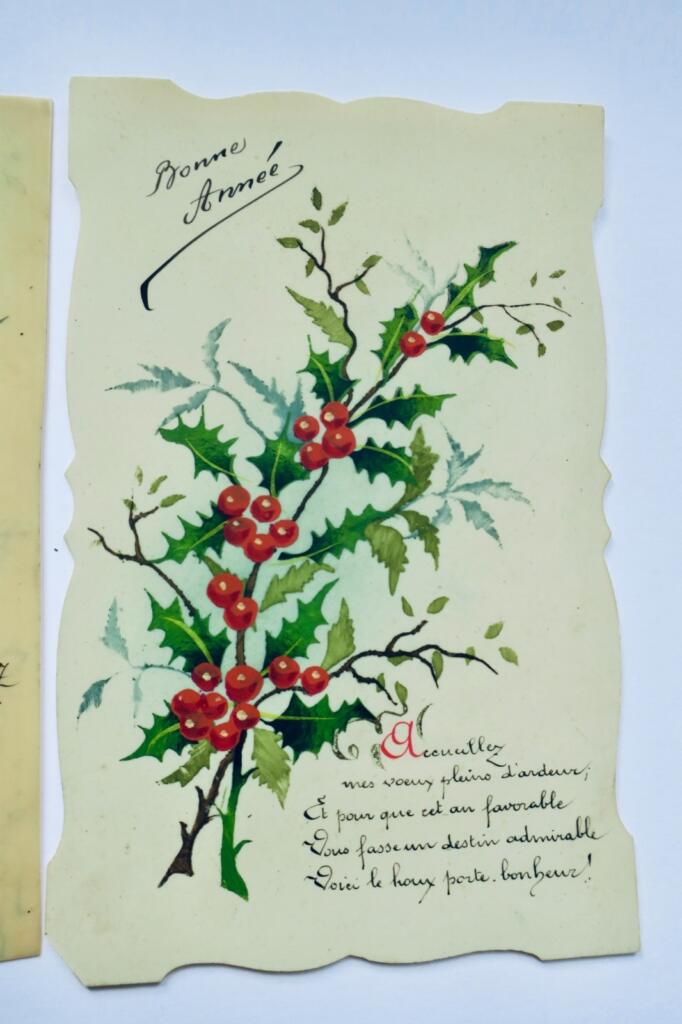 Bonne
Année
Accueillez
mes voeux pleins d'ardeur;
Et pour que cet an favorable
Vous fasse un destin admirable
Voici le houx porte-bonheur!